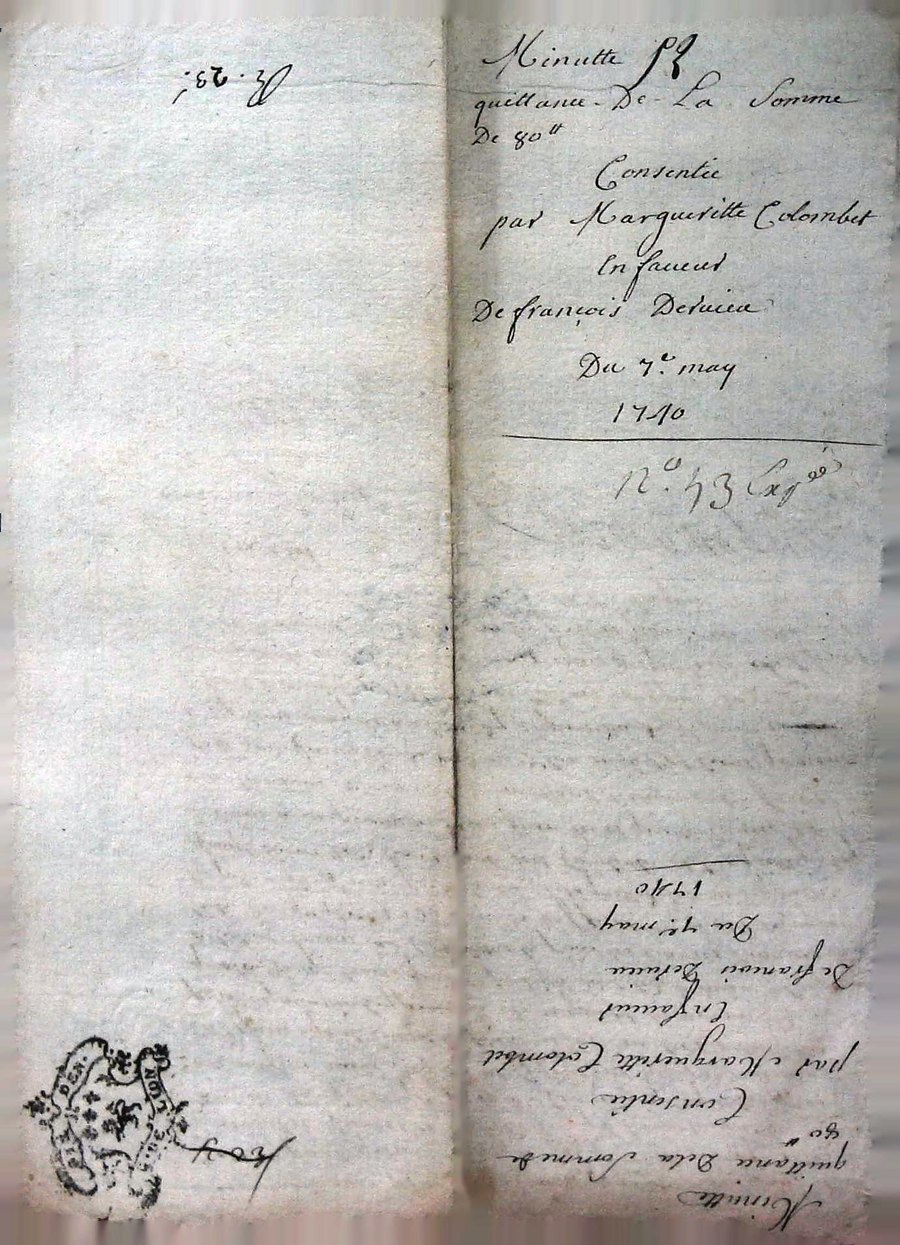 Minutte
quittance De La Somme
De 80ₗₜ
Consentie
par Margueritte Colombet
En faveur
De françois Dervieu
Du 7.e may
1740
N.o 43 Exp.ée
Minutte
quittance Dela Somme de
80ₗₜ
Consentie
par Margueritte Colombet
En faveur
De francois Dervieu
Du 7.e may
1740
DEN.
LION